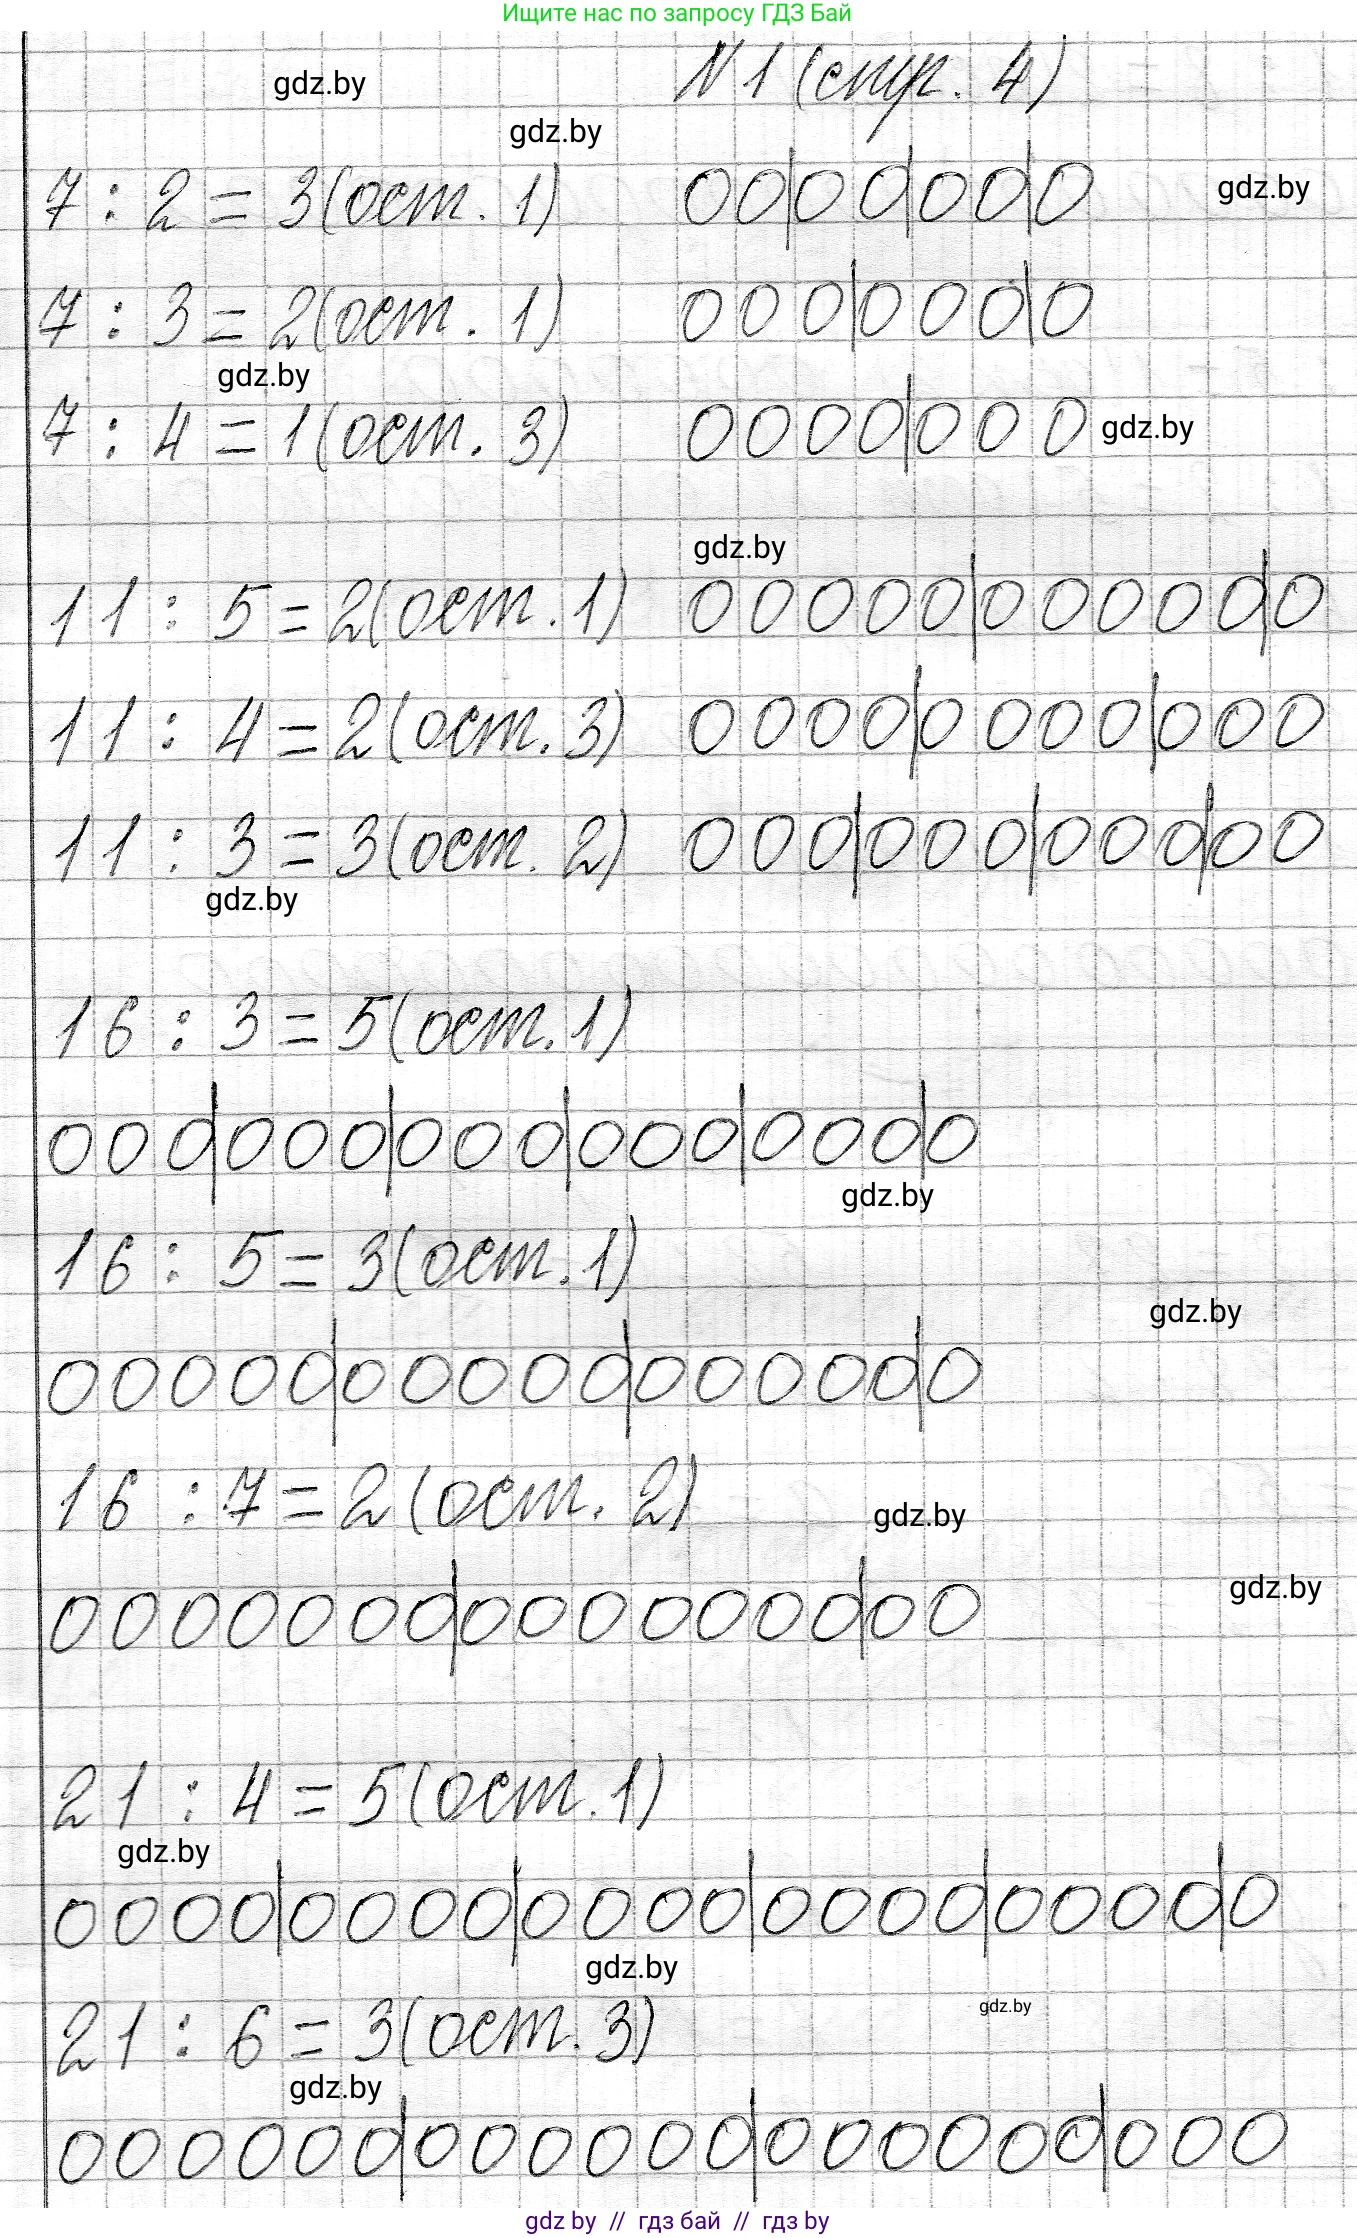 Ищите нас по запросу ГДЗ Бай
№1 (стр. 4)
gdz.by
gdz.by
7 : 2 = 3(ост. 1) 00|00|00|0
gdz.by
7 : 3 = 2(ост. 1) 000|000|0
gdz.by
7 : 4 = 1(ост. 3) 0000|000
gdz.by
gdz.by
11 : 5 = 2(ост. 1) 00000|00000|0
11 : 4 = 2(ост. 3) 0000|0000|000
11 : 3 = 3(ост. 2) 000|000|000|00
gdz.by
16 : 3 = 5(ост. 1)
000|000|000|000|000|0
gdz.by
16 : 5 = 3(ост. 1)
gdz.by
00000|00000|00000|0
16 : 7 = 2(ост. 2)
gdz.by
gdz.by
0000000|0000000|00
21 : 4 = 5(ост. 1)
gdz.by
0000|0000|0000|0000|0000|0
gdz.by
21 : 6 = 3(ост. 3)
gdz.by
gdz.by
000000|000000|000000|000
gdz by // гдз бай // гдз by